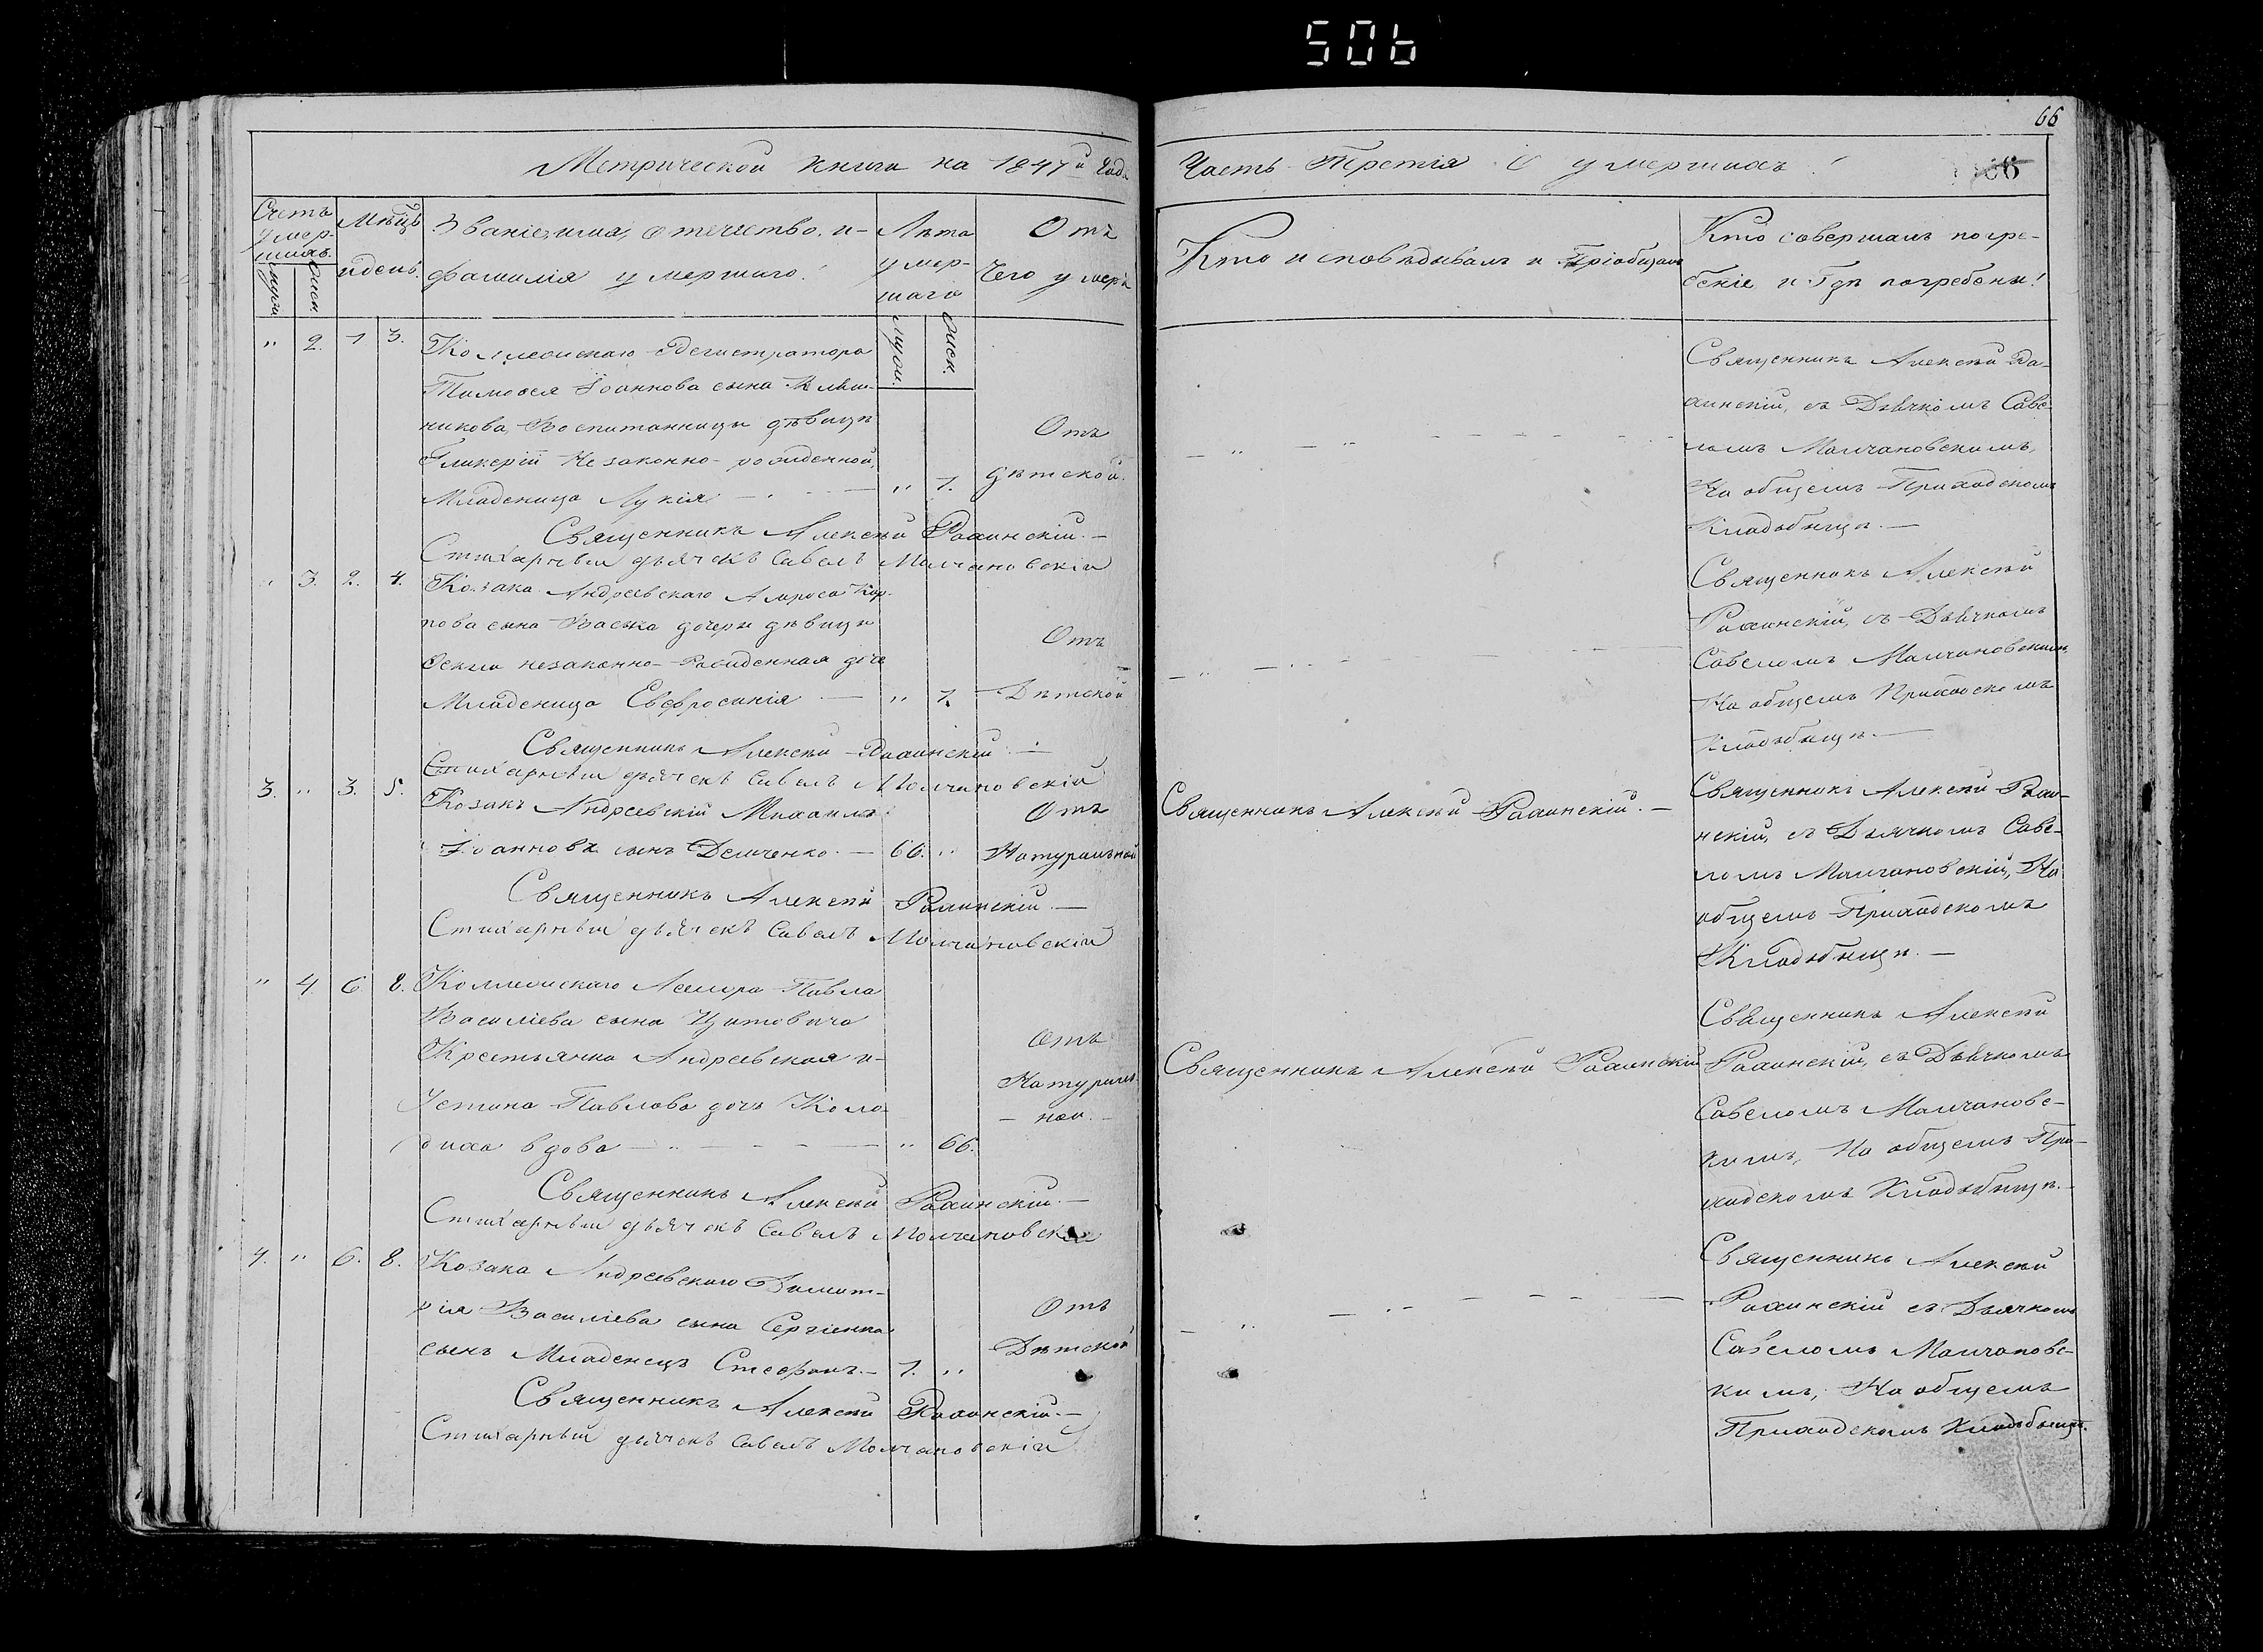 506
66
Метрической книги на 1847й Года
Часть Третія О умершихъ!
66
Счетъ умер-
шихъ.
мужи.
женн.
Мѣсцъ
и день.
Званіе, имя, отечество, и-
фамилія умершаго!
Лѣта
умер-
шаго
Мужи.
женн.
Отъ
Чего умеръ
Кто исповѣдывалъ и Пріобщалъ
Кто совершалъ погре-
беніе и Гдѣ погребены!
" 2. 1 3.
Коллежскаго Регистратора
Тимофея Іоаннова сына
никова, Воспитанницы дѣвицы
Гликеріи Незаконно-рожденной,
Младеница Лукія " 1.
Отъ
дѣтской.
Священникъ Алексѣй Рахинскій.—
Стихарный дьячекъ Савелъ Молчановскій
Священникъ Алексѣй Ра-
хинскій, съ Дьячкомъ Саве-
ломъ Молчановскимъ,
На общемъ Приходскомъ
Кладбищѣ.—
" 3. 2. 4.
Козака Андреевскаго Амроса Кар-
пова сына Васька дочери дѣвицы
незаконно-Рожденная дочь
Младеница Евфросинія — " 1.
Отъ
Дѣтской
Священникъ Алексѣй Рахинскій.—
Стихарный дьячекъ Савелъ Молчановскій
Священникъ Алексѣй
Рахинскій, съ Дьячкомъ
Савеломъ Молчановскимъ,
На общемъ Приходскомъ
Кладбищѣ.—
3. " 3. 5.
Козакъ Андреевскій Михаилъ
Іоанновъ сынъ Демченко.— 66. "
Отъ
Натуральной
Священникъ Алексѣй Рахинскій.—
Священникъ Алексѣй Рахинскій.—
Стихарный дьячекъ Савелъ Молчановскій
Священникъ Алексѣй Рахи-
нскій, съ Дьячкомъ Саве-
ломъ Молчановскій, На
общемъ Приходскомъ
Кладбищѣ.—
" 4. 6. 8.
Коллежскаго Асесора Павла
Василіева сына Цитовича
Крестьянка Андреевская и-
Устина Павлова дочь Коло-
диха вдова — " 66.
Отъ
Натураль-
ной.
Священникъ Алексѣй Рахинскій
Священникъ Алексѣй Рахинскій.—
Стихарный дьячекъ Савелъ Молчановскій
Священникъ Алексѣй
Рахинскій, съ Дьячкомъ
Савеломъ Молчановс-
кимъ, На общемъ При-
ходскомъ Кладбищѣ.—
4. " 6. 8.
Козака Андреевскаго Димит-
рія Василіева сына Сергіенка
сынъ Младенецъ Стефанъ.— 1. "
Отъ
Дѣтской
Священникъ Алексѣй Рахинскій.—
Стихарный дьячекъ Савелъ Молчановскій
Священникъ Алексѣй
Рахинскій съ Дьячкомъ
Савеломъ Молчановс-
кимъ, На общемъ
Приходскомъ Кладбищѣ.